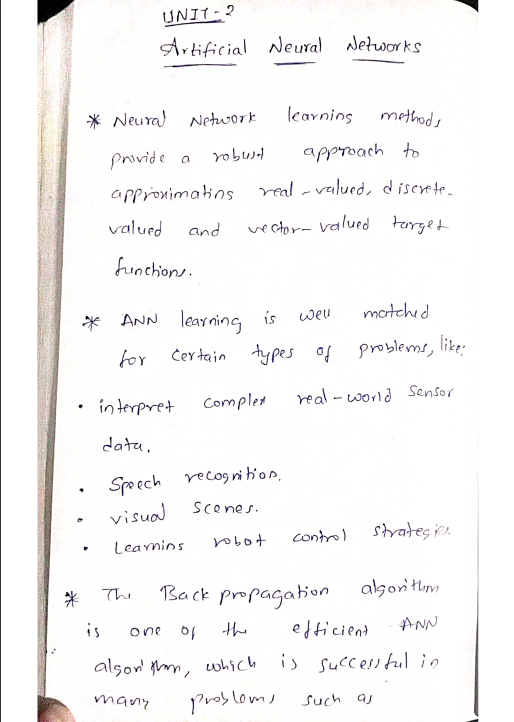 UNIT-2
Artificial Neural Networks
* Neural Network learning methods
provide a robust approach to
approximating real-valued, discrete-
valued and vector-valued target
functions.
* ANN learning is well matched
for certain types of problems, like:
• interpret complex real-world sensor
data.
• Speech recognition.
• visual scenes.
• Learning robot control strategies.
* The Back propagation algorithm
is one of the efficient ANN
algorithm, which is successful in
many problems such as